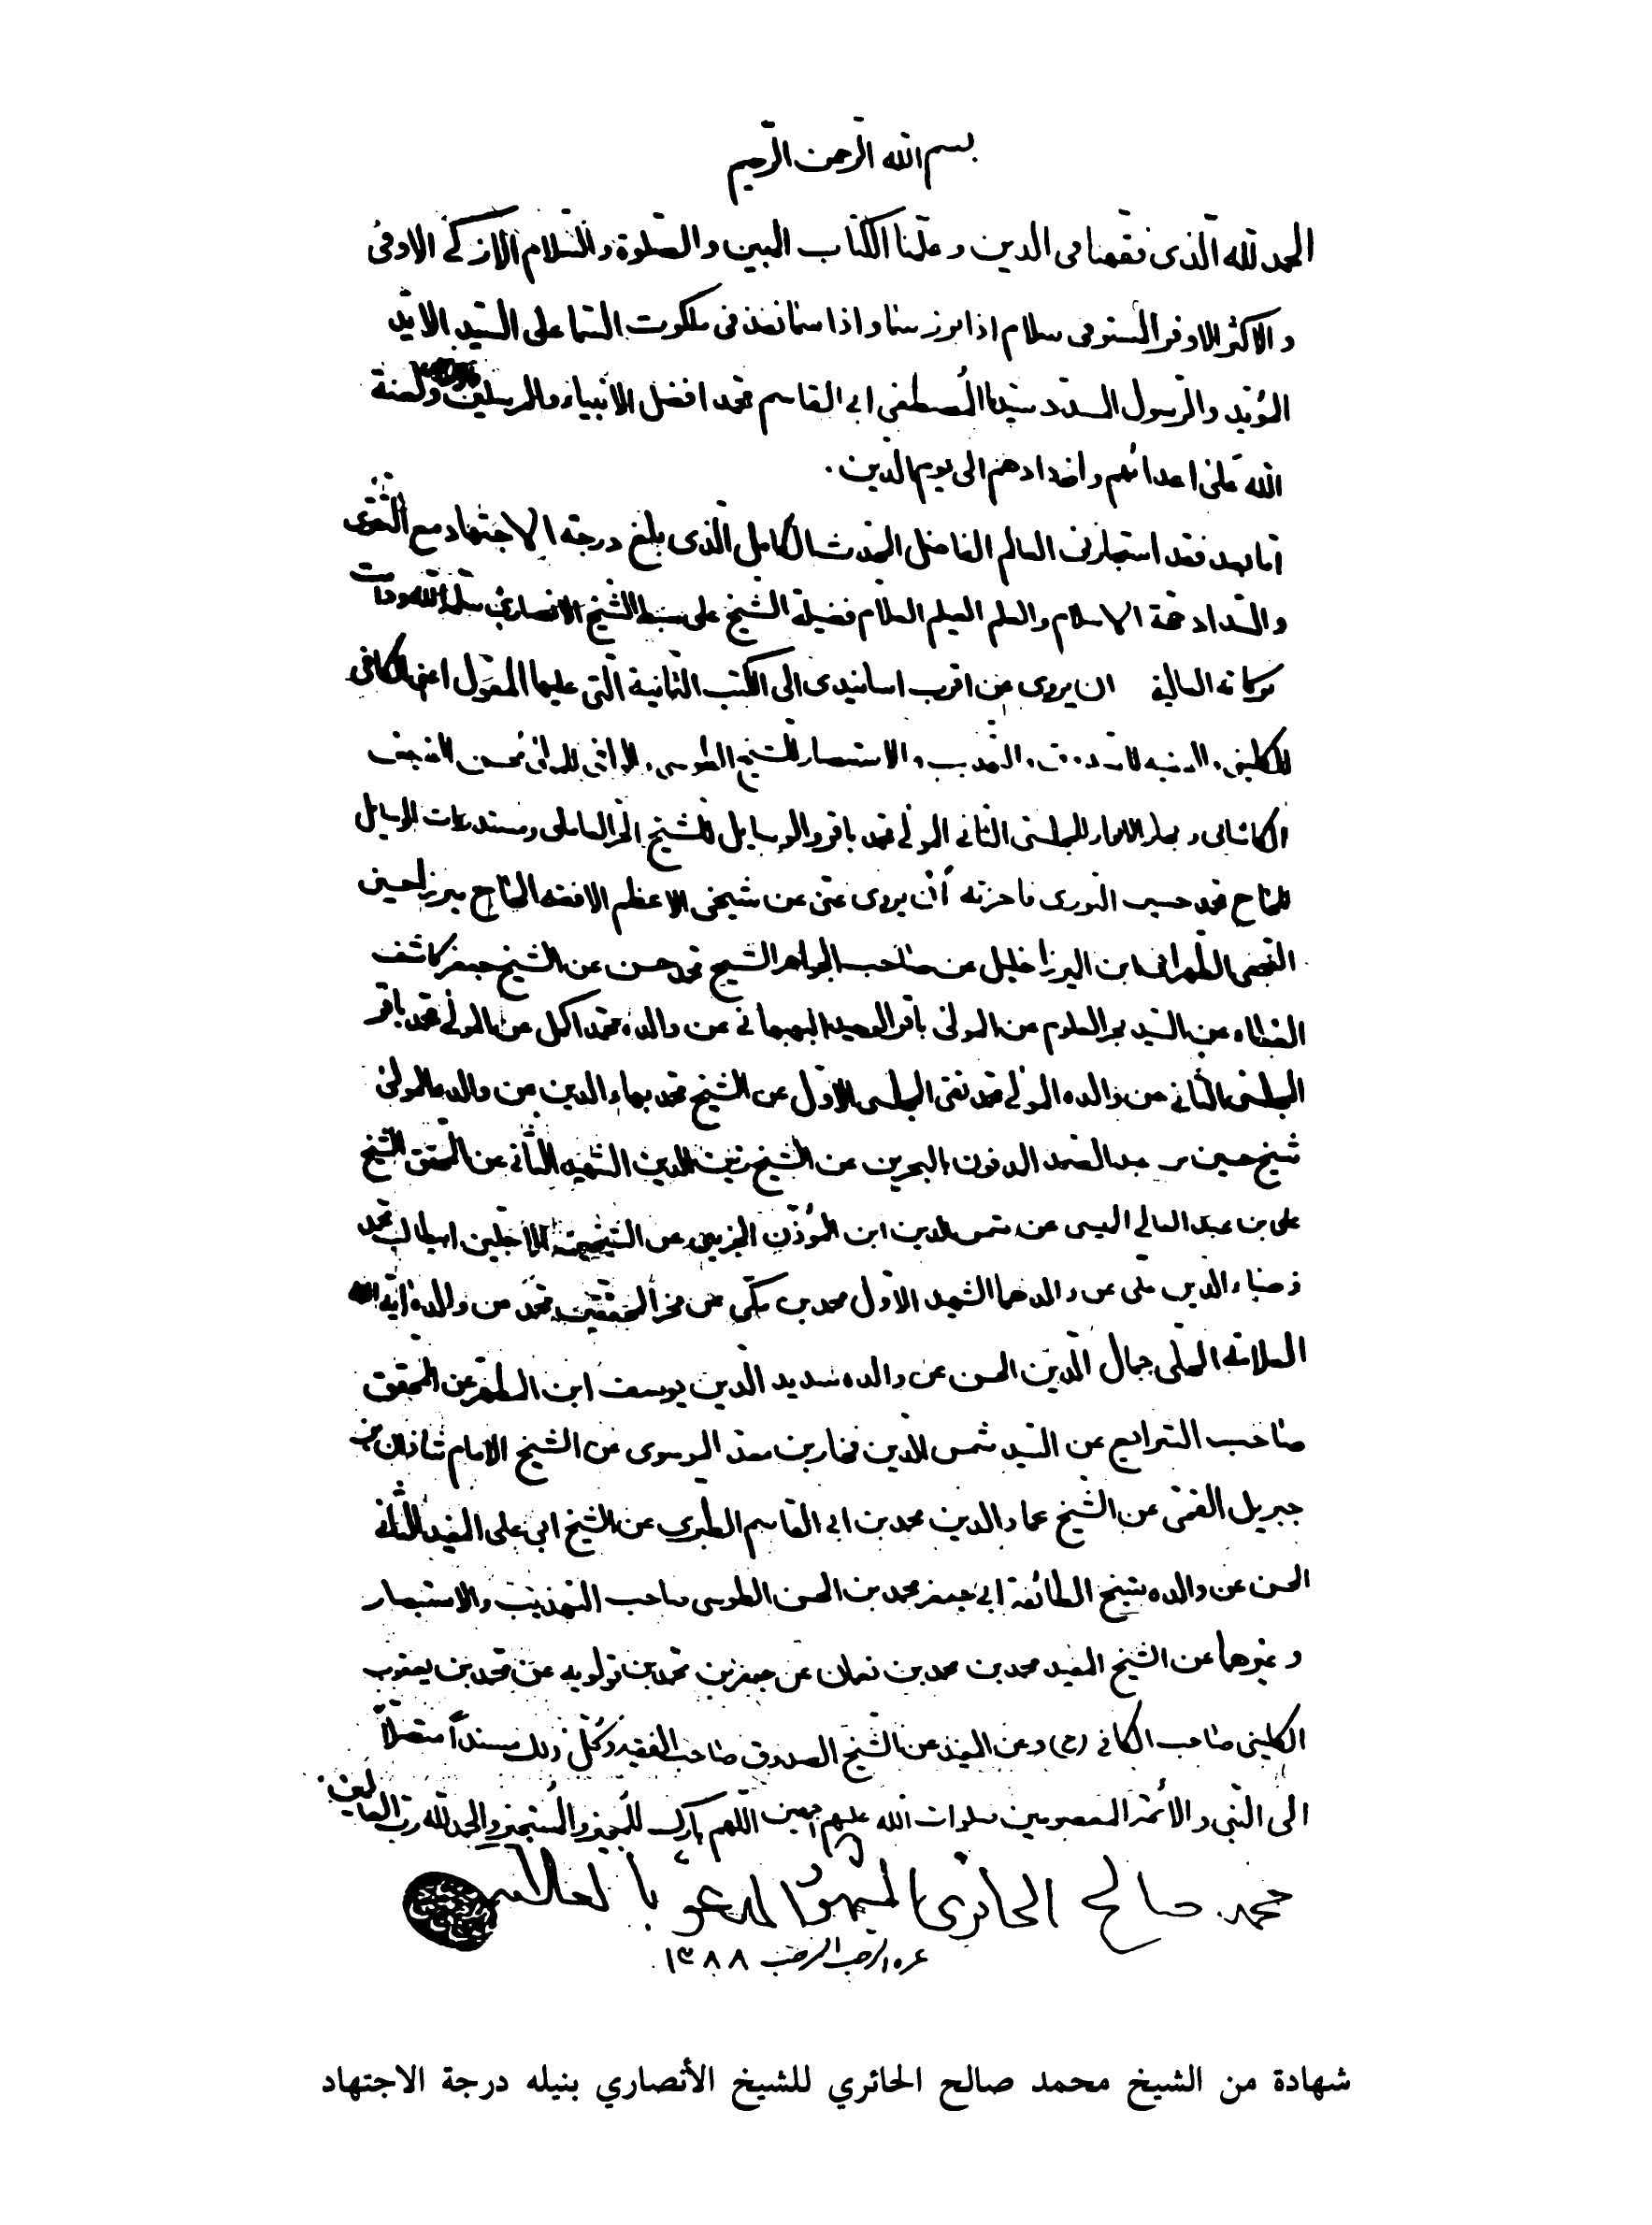 بسم الله الرحمن الرحيم
الحمد لله الذى فقهنا فى الدين وعلمنا الكتاب المبين والصلوة والسلام الازكى الاوفى
والاكثر الاوفر المستوفى سلام اذا برز سنا واذا سما نفذ فى ملكوت السما على السيد الايد
المؤيد والرسول المسدد سيدنا المصطفى ابى القاسم محمد افضل الانبياء والمرسلين ولعنة
الله على اعدائهم واضدادهم الى يوم الدين .
اما بعد فقد استجازنى العالم الفاضل المحدث الكامل الذى بلغ درجة الاجتهاد مع التقوى
والسداد ثقة الاسلام والعلم العيلم العلام فضيلة الشيخ على سبط الشيخ الانصارى سلمه الله ودامت
بركاته العالية ان يروى عن اقرب اسانيدى الى الكتب الثمانية التى عليها المعول اعنى الكافى
للكلينى والفقيه للصدوق والتهذيب والاستبصار للشيخ الطوسى والوافى للمولى محسن الفيض
الكاشانى وبحار الانوار للمجلسى الثانى المولى محمد باقر والوسايل للشيخ الحر العاملى ومستدركات الوسايل
للحاج محمد حسين النورى فاجزته أن يروى عنى عن شيخى الاعظم الافقه الحاج ميرزا حسين
النجفى الطهرانى ابن الميرزا خليل عن صاحب الجواهر الشيخ محمد حسن عن الشيخ جعفر كاشف
الغطاء عن السيد بحر العلوم عن المولى باقر الوحيد البهبهانى عن والده محمد اكمل عن المولى محمد باقر
المجلسى الثانى عن والده المولى محمد تقى المجلسى الاول عن الشيخ محمد بهاء الدين عن والده المولى
شيخ حسين بن عبد الصمد المدفون بالبحرين عن الشيخ زين الدين الشهيد الثانى عن المحقق الشيخ
على بن عبد العالى الميسى عن شمس الدين ابن المؤذن الجزينى عن الشيخين الاجلين ابيطالب محمد
وضياء الدين على عن والدهما الشهيد الاول محمد بن مكى عن فخر المحققين محمد عن والده آية الله
العلامة الحلى جمال الدين الحسن عن والده سديد الدين يوسف ابن المطهر عن المحقق
صاحب الشرايع عن السيد شمس الدين فخار بن معد الموسوى عن الشيخ الامام شاذان بن
جبريل القمى عن الشيخ عماد الدين محمد بن ابى القاسم الطبرى عن الشيخ ابى على المفيد الثانى
الحسن عن والده شيخ الطائفة ابى جعفر محمد بن الحسن الطوسى صاحب التهذيب والاستبصار
وغيرها عن الشيخ المفيد محمد بن محمد بن نعمان عن جعفر بن محمد بن قولويه عن محمد بن يعقوب
الكلينى صاحب الكافى (ح) وعن المفيد عن الشيخ الصدوق صاحب الفقيه وكل ذلك مسنداً متصلاً
الى النبى والائمة المعصومين صلوات الله عليهم اجمعين اللهم بارك للمجيز والمستجيز والحمد لله رب العالمين .
محمد صالح الحائرى المدعو بالعلامة
غره الرجب المرجب ١٣٨٨
شهادة من الشيخ محمد صالح الحائري للشيخ الأنصاري بنيله درجة الاجتهاد